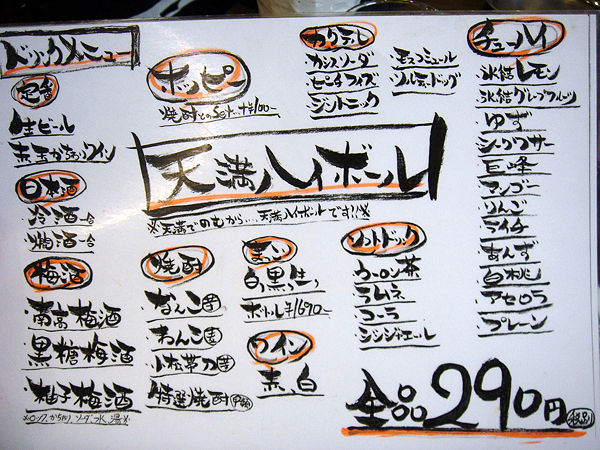 ドリンクメニュー
定番
生ビール
赤玉かちわりワイン
日本酒
冷酒 一合
燗酒 一合
梅酒
南高梅酒
黒糖梅酒
柚子梅酒
※ロック、かちわり、ソーダ、水、湯※
ホッピー
焼酎とのSet
カクテル
カシスソーダ
ピーチフィズ
ジントニック
モスコミュール
ソルティードッグ
天満ハイボール
※天満でのむから…天満ハイボールです!!※
焼酎
なんこ 芋
わんこ 麦
小松帯刀 芋
特選焼酎
まっこり
白、黒、生、
ボトル ¥1690-
ワイン
赤、白
ソフトドリンク
ウーロン茶
ラムネ
コーラ
ジンジャエール
チューハイ
氷結レモン
氷結グレープフルーツ
ゆず
シークワサー
巨峰
マンゴー
りんご
ライチ
あんず
白桃
アセロラ
プレーン
全品290円 税別